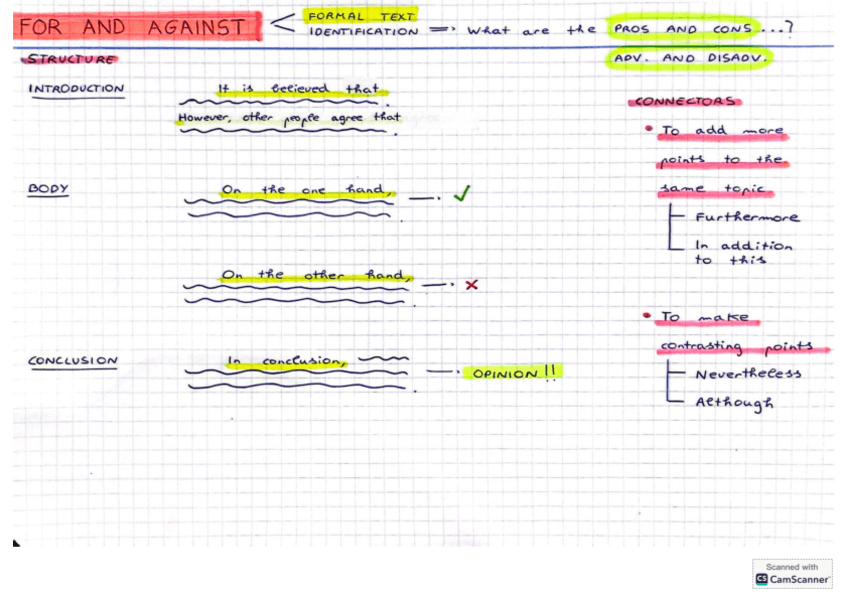 FOR AND AGAINST
FORMAL TEXT
IDENTIFICATION => What are the PROS AND CONS...?
ADV. AND DISADV.
STRUCTURE
INTRODUCTION
It is believed that
However, other people agree that
BODY
On the one hand, ✓
On the other hand, ✗
CONCLUSION
In conclusion,
OPINION!!
CONNECTORS
• To add more
points to the
same topic
Furthermore
In addition
to this
• To make
contrasting points
Nevertheless
Although
Scanned with
CS CamScanner